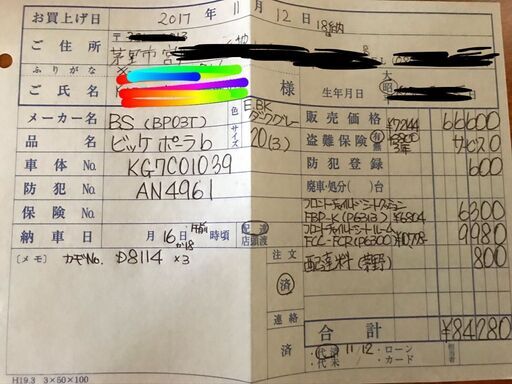 お買上げ日 2017年 11月 12日 18時納
ご住所 〒
茅野市宮
ふりがな
ご氏名 様 生年月日 大 昭
メーカー名 BS (BP03T) 色 E.BK ダークグレー
品名 ビッケ ポーラb サイズ 20(3)
車体No. KG7C01039
防犯No. AN4961
保険No.
納車日 月 16日 午前 時頃 配達 店頭渡
[メモ] カギNo. D8114 ×3
販売価格 66600
盗難保険 有 無 3年 サービス 0
防犯登録 600
廃車・処分( )台
フロントチャイルドシートクッション
FBP-K (P6313) ¥6804 6300
フロントチャイルドシートルーム
FCC-FCR(P6300) ¥10778 9980
注文 済 配達料(茅野) 800
連絡 済
合計 ¥84280
・代済 11/12 ・ローン
・代未 / ・カード
担当者
H19.3 3×50×100